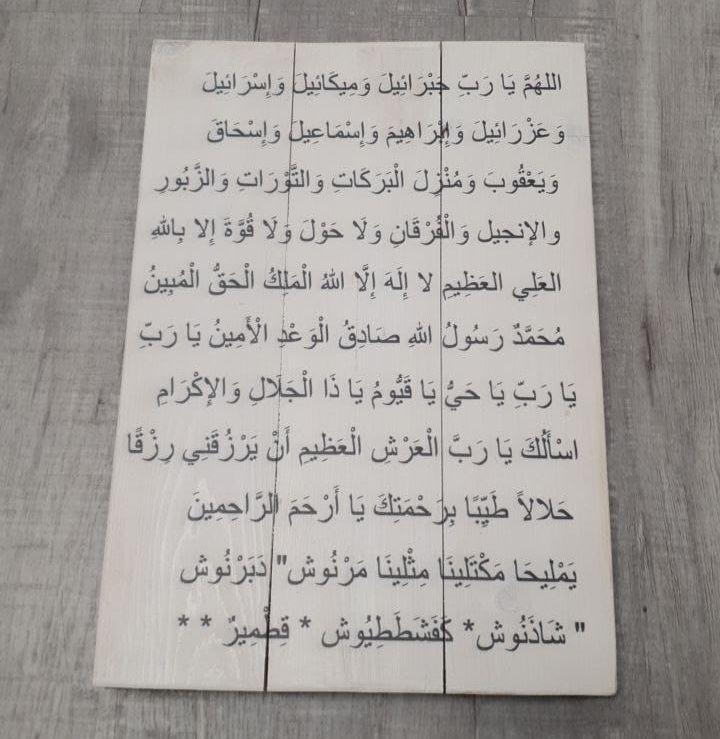 اللهُمَّ يَا رَبِّ جَبْرَائِيلَ وَمِيكَائِيلَ وَإِسْرَائِيلَ
وَعَزْرَائِيلَ وَإِبْرَاهِيمَ وَإِسْمَاعِيلَ وَإِسْحَاقَ
وَيَعْقُوبَ وَمُنْزِلَ الْبَرَكَاتِ وَالتَّوْرَاتِ وَالزَّبُورِ
والإنجيل وَالْفُرْقَانِ وَلَا حَوْلَ وَلَا قُوَّةَ إِلا بِاللهِ
العَلِي العَظِيمِ لا إِلَهَ إِلَّا اللهُ الْمَلِكُ الْحَقُّ الْمُبِينُ
مُحَمَّدٌ رَسُولُ اللهِ صَادِقُ الْوَعْدِ الْأَمِينُ يَا رَبِّ
يَا رَبِّ يَا حَيُّ يَا قَيُّومُ يَا ذَا الْجَلَالِ وَالإِكْرَامِ
اسْأَلُكَ يَا رَبَّ الْعَرْشِ الْعَظِيمِ أَنْ يَرْزُقَنِي رِزْقًا
حَلالاً طَيِّبًا بِرَحْمَتِكَ يَا أَرْحَمَ الرَّاحِمِينَ
يَمْلِيحَا مَكْتَلِينَا مِثْلِينَا مَرْنُوش" دَبَرْنُوش
" شَاذَنُوش* كَفَشَطَطِيُوش * قِطْمِيرٌ * *